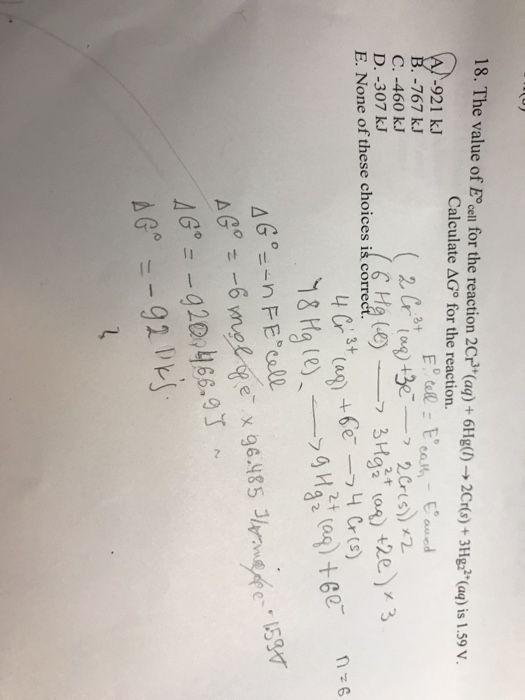 18. The value of E°cell for the reaction 2Cr³⁺(aq) + 6Hg(l) → 2Cr(s) + 3Hg₂²⁺(aq) is 1.59 V.
Calculate ΔG° for the reaction.
A. -921 kJ
B. -767 kJ
C. -460 kJ
D. -307 kJ
E. None of these choices is correct.
E°cell = E°cath - E°anod
(2Cr³⁺(aq) + 3e⁻ → 2Cr(s)) × 2
(6Hg(l) → 3Hg₂²⁺(aq) + 2e) × 3
4Cr³⁺(aq) + 6e⁻ → 4Cr(s)
18Hg(l) → 9Hg₂²⁺(aq) + 6e⁻
n=6
ΔG° = -nFE°cell
ΔG° = -6 mol e⁻ × 96.485 J/ 1.59V
ΔG° = -920,466.9J
ΔG° = -921KJ